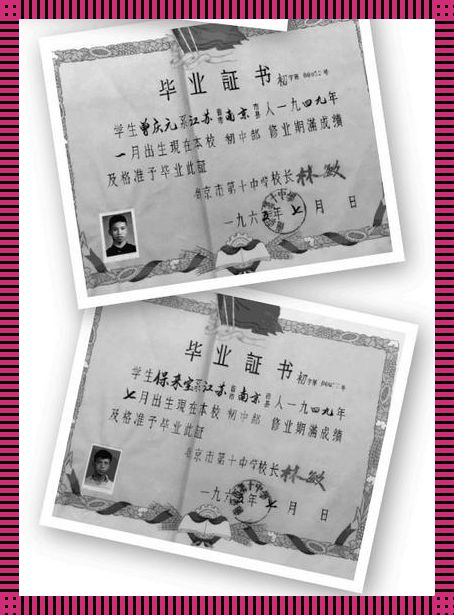 毕业証书
初字第
号
学生曾庆元系江苏省市南京市县人一九四九年
一月出生現在本校 初中部 修业期滿成绩
及格准予毕业此証
南京市第十中学校长林敏
一九六五年六月 日
毕业証书
初字第
号
学生保来宝系江苏省市南京市县人一九四九年
七月出生現在本校 初中部 修业期滿成绩
及格准予毕业此証
南京市第十中学校长林敏
一九六五年六月 日